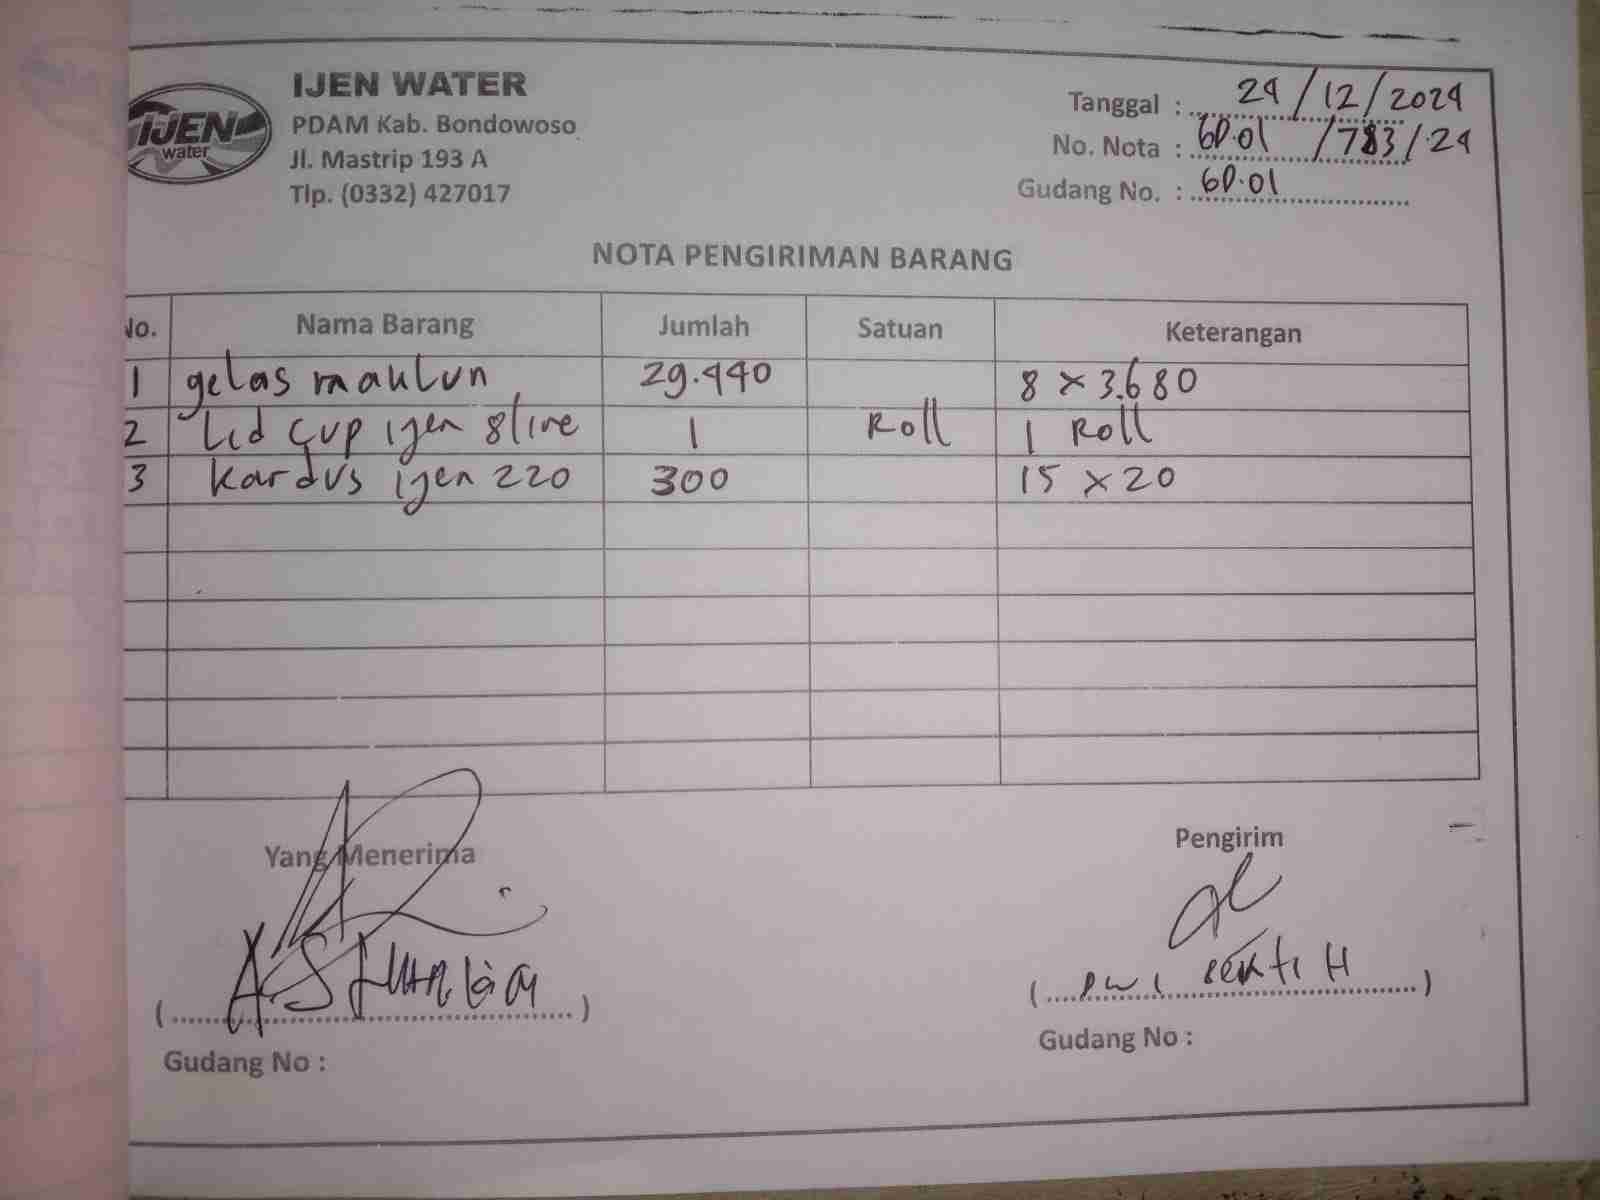 IJEN WATER
PDAM Kab. Bondowoso
Jl. Mastrip 193 A
Tlp. (0332) 427017
IJEN
water
Tanggal : 24/12/2024
No. Nota : GD.01 /783/.24
Gudang No. : GD.01
NOTA PENGIRIMAN BARANG
No. Nama Barang Jumlah Satuan Keterangan
1 gelas maulun 29.440 8 x 3.680
2 Lid cup ijen 8 line 1 Roll 1 Roll
3 kardus ijen 220 300 15 x 20
Yang Menerima Pengirim
( ) ( DWI )
Gudang No : Gudang No :